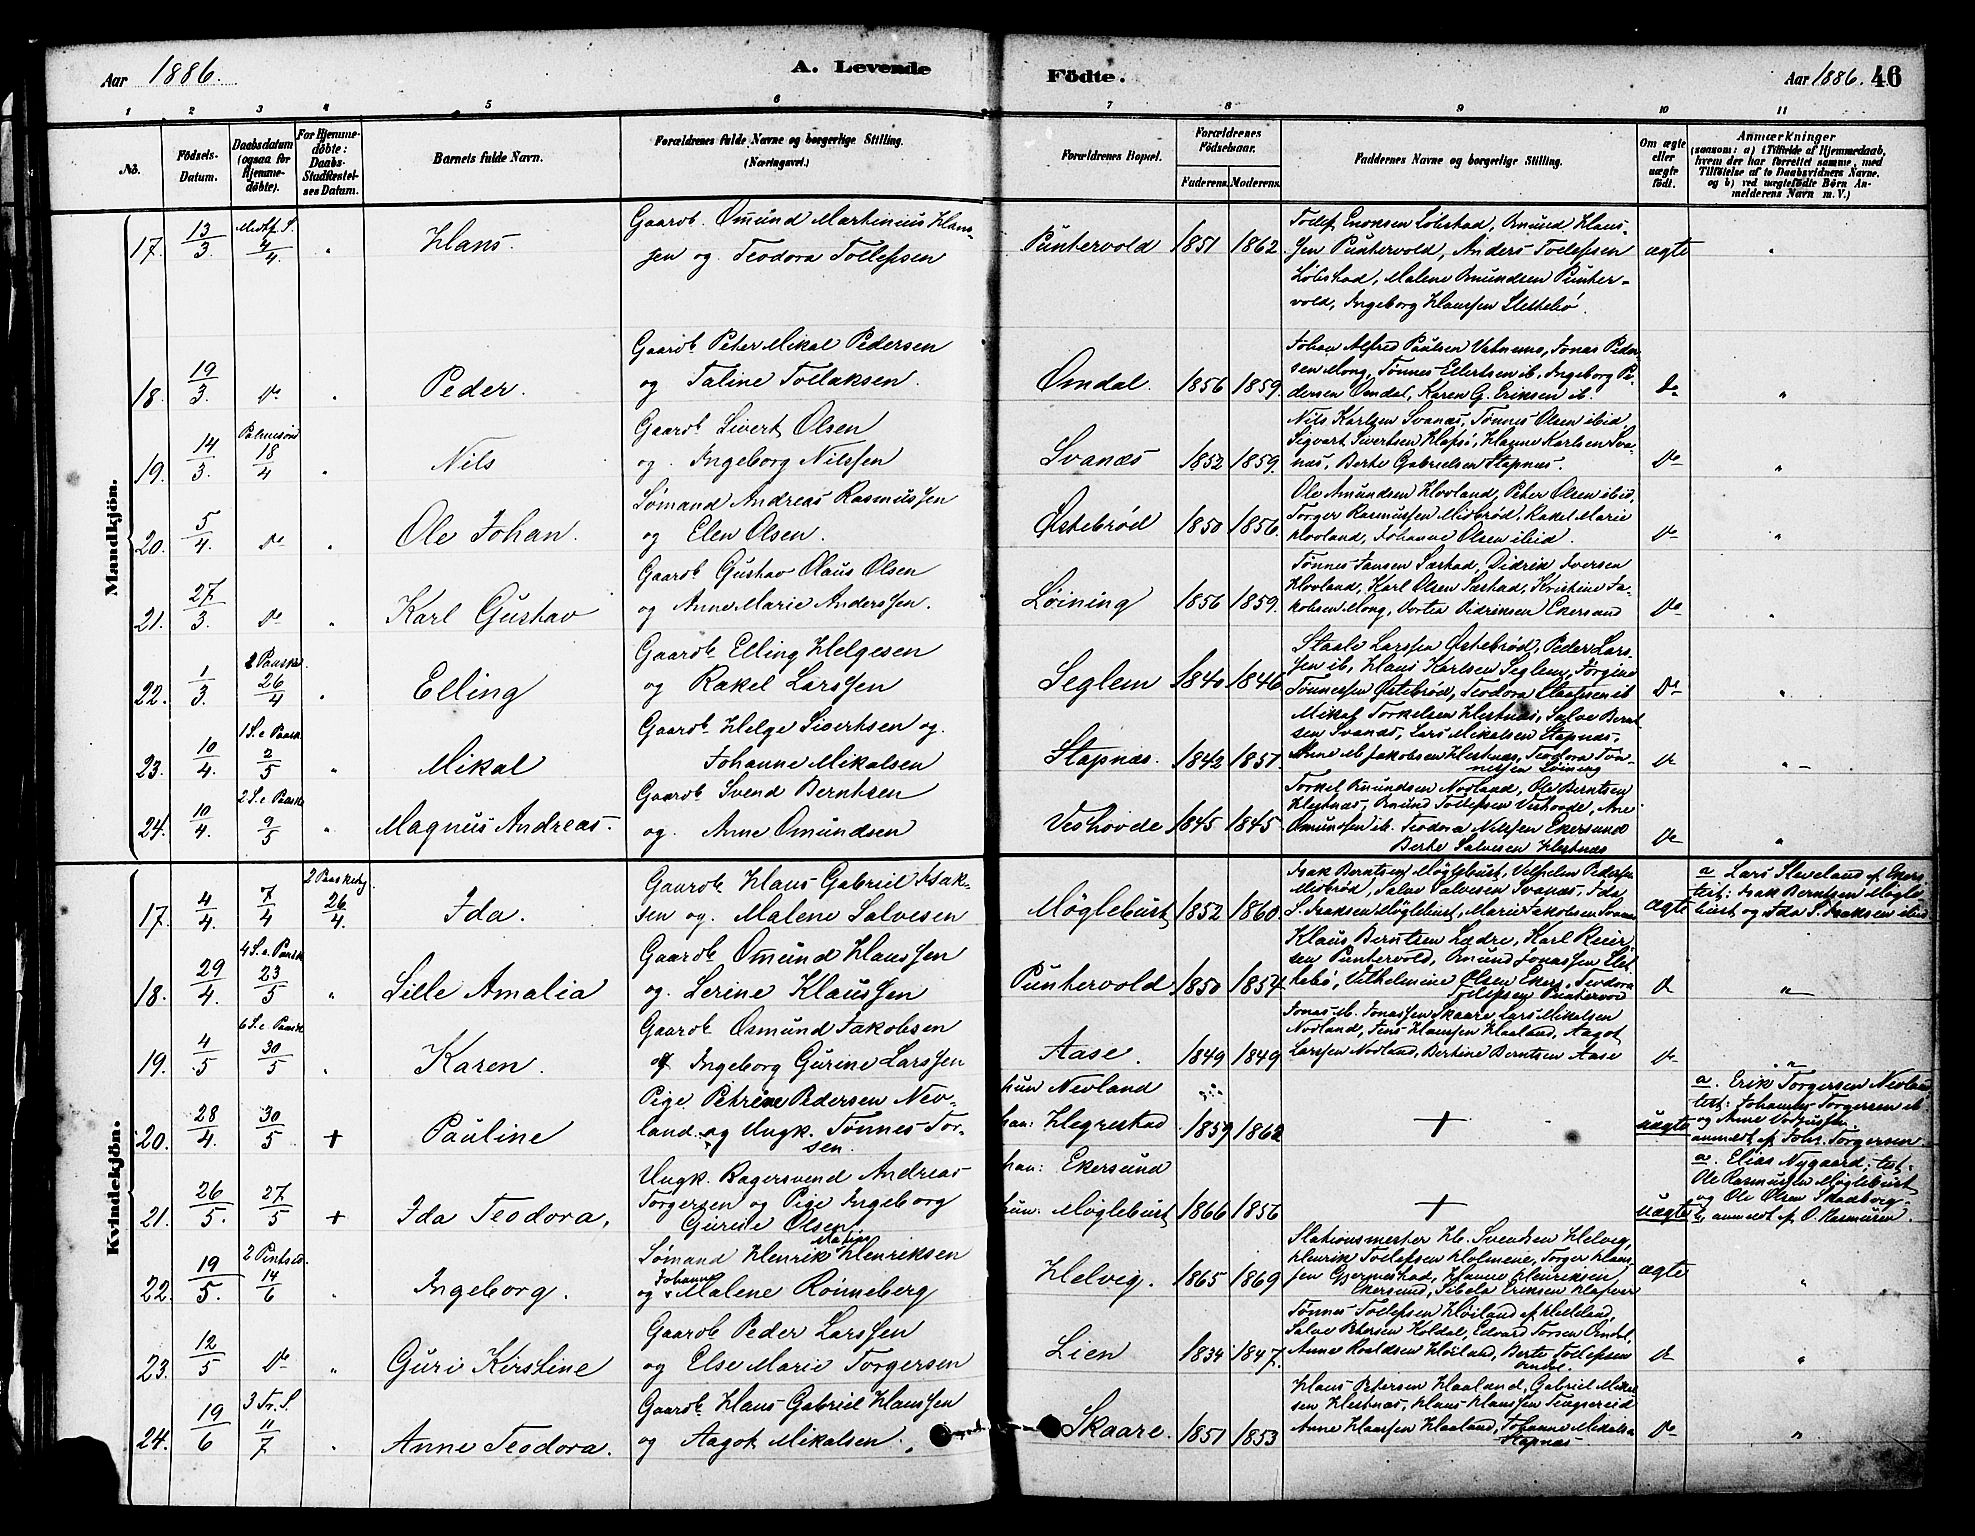 Aar 1886. A. Levende Fødte. Aar 1886. 46
1 2 3 4 5 6 7 8 9 10 11
No. Fødsels-Datum. Daabsdatum (ogsaa for Hjemmedøbte). For Hjemmedøbte: Daabs-Stadfæstelses Datum. Barnets fulde Navn. Forældrenes fulde Navne og borgerlige Stilling. (Næringsvei.) Forældrenes Bopæl. Forældrenes Fødselsaar. Faderens. Moderens. Faddernes Navne og borgerlige Stilling. Om ægte eller uægte født. Anmærkninger (saasom: a) i Tilfælde af Hjemmedaab, hvem der har forrettet samme, med Tilføielse af to Daabsvidners Navne. og b) ved uægtefødte Børn Anmelderens Navn m. V.)
Mandkjön.
17. 13/3 Midtf. S. 4/4 " Hans. Gaarb. Omund Martinius Hans-
sen og Teodora Tollefsen Puntervold 1851 1862 ægte "
Tollef Enoksen Løbstad, Omund Hans-
sen Puntervold, Anders Tollefsen
Løbstad, Malene Omundsen Punter-
vold, Ingeborg Hanssen Slettebö.
18. 19/3 Do " Peder. Gaarb Peter Mikal Pedersen
og Taline Tollaksen. Omdal. 1856 1859. Do "
Johan Alfred Paulsen Vatnem, Jonas Peder-
sen Mong, Tønnes Eilertsen ib, Ingeborg Pe-
dersen Omdal, Karen G. Eriksen ib.
19. 14/3 Palmesønd 18/4 " Nils Gaarb Sivert Olsen
og Ingeborg Nilssen Svanæs 1852 1859. Do "
Nils Karlsen Svanæs, Tönnes Olsen ibid,
Sigvart Sivertsen Hafsö, Hanne Karlsen Sva-
næs, Berte Gabrielsen Stapnæs.
20. 5/4 Do " Ole Johan. Sømand Andreas Rasmussen
og Elen Olsen. Østebrød 1850 1856. Do "
Ole Amundsen Hovland, Peter Olsen ibid,
Torger Rasmussen Midbrød, Rakel Marie
Hovland, Johanne Olsen ibid.
21. 27/3 Do " Karl Gustav Gaarb Gustav Olaus Olsen
og Anne Marie Anderssen. Løining 1856 1859. Do "
Tønnes Jansen Sæstad, Didrik Iversen
Hovland, Karl Olsen Sæstad, Kristine Ja-
kobsen Mong, Vortea Didriksen Ekersund
22. 1/3 2 Paaske 26/4 " Elling Gaarb Elling Helgesen
og Rakel Larssen Seglem 1840 1846 Do "
Staale Larssen Østebrød, Peder Lars-
sen ib, Hans Karlsen Seglem, Torgine
Tönnessen Østebrød, Teodora Staalesen ib
23. 10/4 1 S. e Paask 2/5 " Mikal Gaarb. Helge Sivertsen og
Johanne Mikalsen Stapnæs. 1842 1857. Do "
Mikal Torkelsen Hestnæs, Salve Bernt-
sen Svanæs, Lars Mikalsen Stapnæs,
Anne M. Jakobsen Hestnæs, Teodora Tön-
nessen Løining
24. 10/4 2 S. e Paask 9/5 " Magnus Andreas. Gaarb Svend Berntsen
og Anne Omundsen Veshovde 1845 1845. Do "
Torkel Omundsen Nodland, Ole Berntsen
Hestnæs, Omund Tollefsen Veshovde, Ane
Omundsen ib. Teodora Nilssen Ekersund
Berte Salvesen Hestnæs
Kvindekjön.
17. 4/4 7/4 2 Paaskedag 26/4. Ida. Gaarb Hans Gabriel Isak-
sen og Malene Salvesen Møglebust 1852 1860. Ægte
Isak Berntsen Møglebust, Vilhelm Pedersen
Midbrød, Salve Salvesen Svanæs, Ida
S. Isaksen Møglebust, Marie Jakobsen Svanæs
a Lars Sleveland af Ekers
test: Isak Berntsen Møgle-
bust og Ida S. Isaksen ibid
18. 29/4. 4 S. e. Paask 23/5 " Lille Amalia Gaarb Omund Hanssen
og Serine Klaussen Puntervold 1850 1854 Do "
Klaus Berntsen Lædre, Karl Reier-
sen Puntervold, Omund Jonassen Slet-
tebö, Vilhelmine Olsen Eker, Teodora
Tollefsen Puntervold
19. 4/5 6 S. e Paask 30/5 " Karen. Gaarb Osmund Jakobsen
og Ingeborg Gurine Larssen Aase. 1849 1849 Do "
Jonas M. Jonassen Skaare, Lars Mikalsen
Nodland, Jens Hanssen Haaland, Aagot
Larssen Nodland, Bertine Berntsen Aase
20. 28/4 30/5 + Pauline Pige Petrine Pedersen Nev-
land og Ungk. Tönnes Tor-
sen. hun Nevland
han: Hegrestad 1859 1862 + uægte
a. Erik Torgersen Nevland
test: Johannes Torgersen ib
og Anne
anmeldt af Johs. Torgersen
21. 26/5. 27/5 + Ida Teodora. Ungk. Bagersvend Andreas
Torgersen og Pige Ingeborg
Gurine Olsen han: Ekersund
hun: Møglebust 1866 1856 + uægte
a. Elias Nygaard; test.
Ole Rasmussen Møglebust
og Ole Olsen Skadberg
b. anmeldt af O. Rasmussen.
22. 19/5. 2 Pintsed. 14/6 " Ingeborg. Sømand Henrik Martin Henriksen
og Johanne Malene Rönneberg Helvig. 1865 1869 ægte "
Stationsmester H. Svendsen Helvig,
Henrik Tollefsen Holmene, Torger Hans-
sen Gjermestad, Hanne Henriksen
Ekersund, Sibela Eriksen
23. 12/5 Do " Guri Kirstine Gaarb Peder Larssen
og Else Marie Torgersen Lien 1834 1847. Do "
Tönnes Tollefsen Høiland af Helleland,
Salve Petersen Koldal, Edvard Torsen Omdal,
Anne Roaldsen Høiland, Berte Tollefsen
Omdal.
24. 19/6 3 Tr. S. 11/7 " Anne Teodora. Gaarb Hans Gabriel Hanssen
og Aagot Mikalsen. Skaare. 1851 1853 Do "
Hans Petersen Haaland, Gabriel Mikal-
sen Hestnæs, Hans Hanssen Tengereid
Anne Hanssen Haaland, Johanne Mikalsen
Stapnæs.